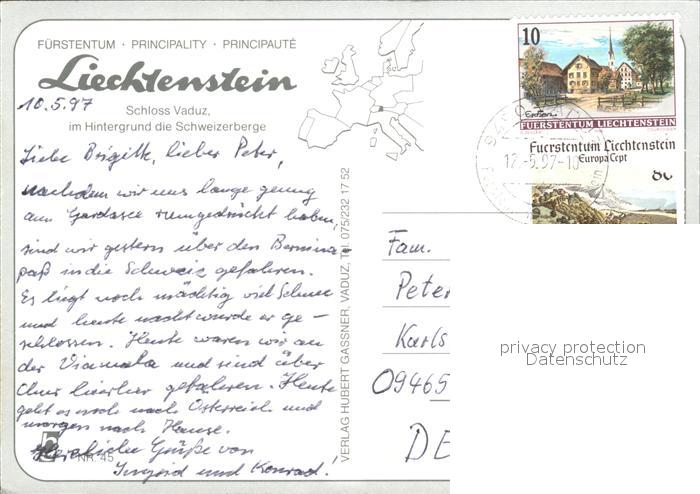 FÜRSTENTUM · PRINCIPALITY · PRINCIPAUTÉ
Liechtenstein
10.5.97
Schloss Vaduz,
im Hintergrund die Schweizerberge
Liebe Brigitte, lieber Peter,
nachdem wir uns lange genug
am Gardasee rumgedrückt haben,
sind wir gestern über den Bernina-
paß in die Schweiz gefahren.
Es liegt noch mächtig viel Schnee
und heute nacht wurde er ge-
schlossen. Heute waren wir an
der Viamala und sind über
Chur hierher gefahren. Heute
geht es noch nach Österreich und
morgen nach Hause.
Herzliche Grüße von
Ingrid und Konrad!
NR. 45
VERLAG HUBERT GASSNER, VADUZ, Tel. 075/232 17 52
10
Eschen
FUERSTENTUM LIECHTENSTEIN
Fuerstentum Liechtenstein
Europa Cept
80
12.-5.97-10
Fam.
Peter
Karls
09465
DE
privacy protection
Datenschutz